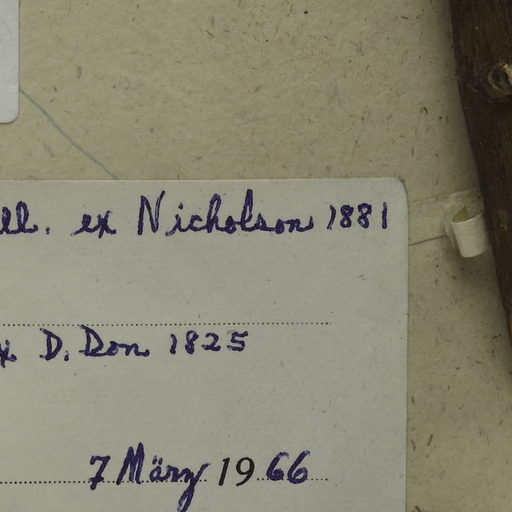 ll. ex Nicholson 1881
x D. Don 1825
7 März 1966